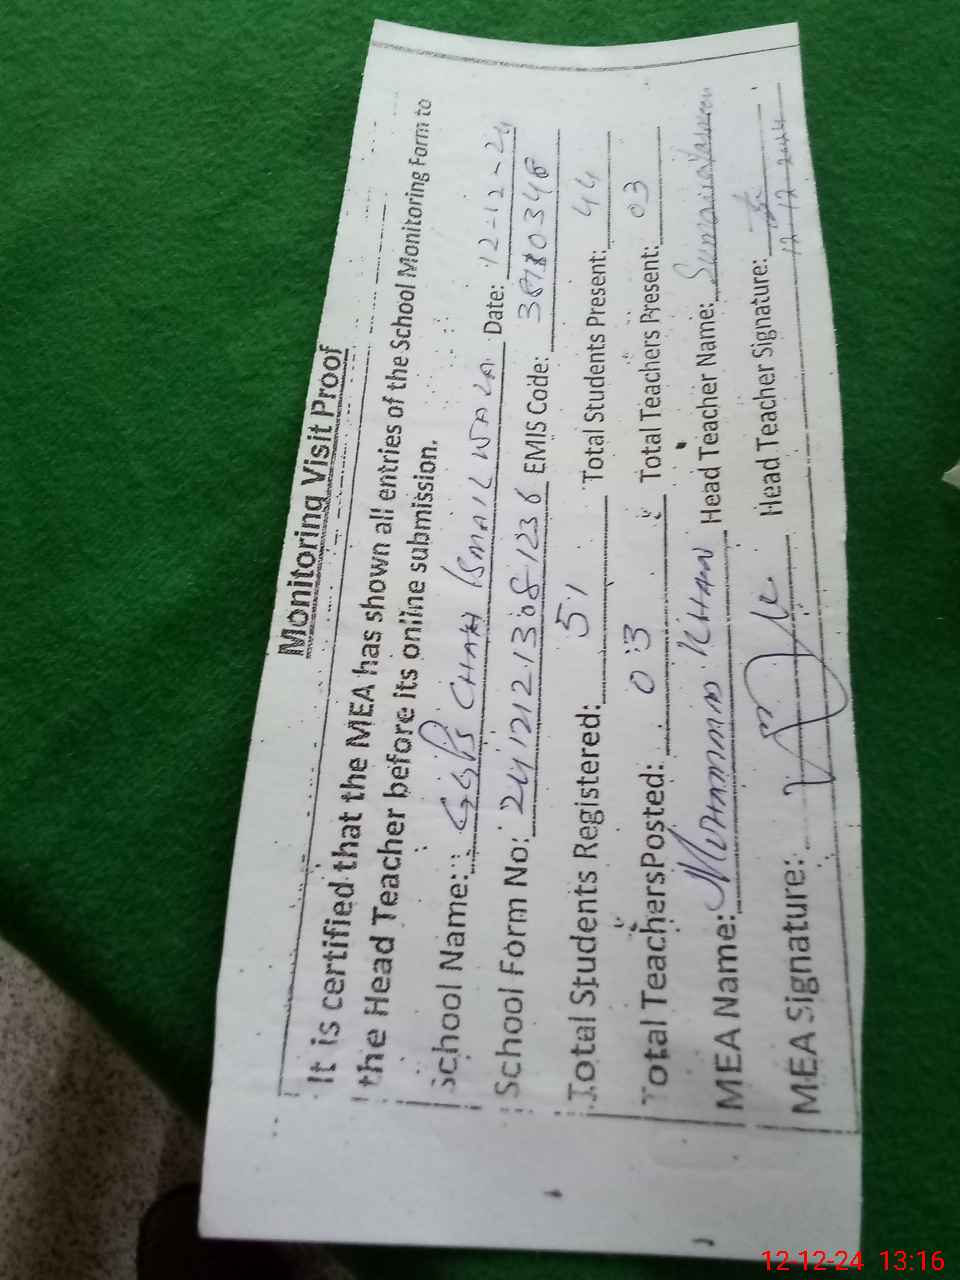 Monitoring Visit Proof
It is certified that the MEA has shown all entries of the School Monitoring Form to
the Head Teacher before its online submission.
School Name: GGPS CHAH ISMAIL WALA Date: 12-12-24
School Form No: 24121213081236 EMIS Code:
Total Students Registered: 51 Total Students Present: 44
Total TeachersPosted: 03 Total Teachers Present: 03
MEA Name: MUHAMMAD KHAN Head Teacher Name:
MEA Signature: Head Teacher Signature:
12-12-24 13:16